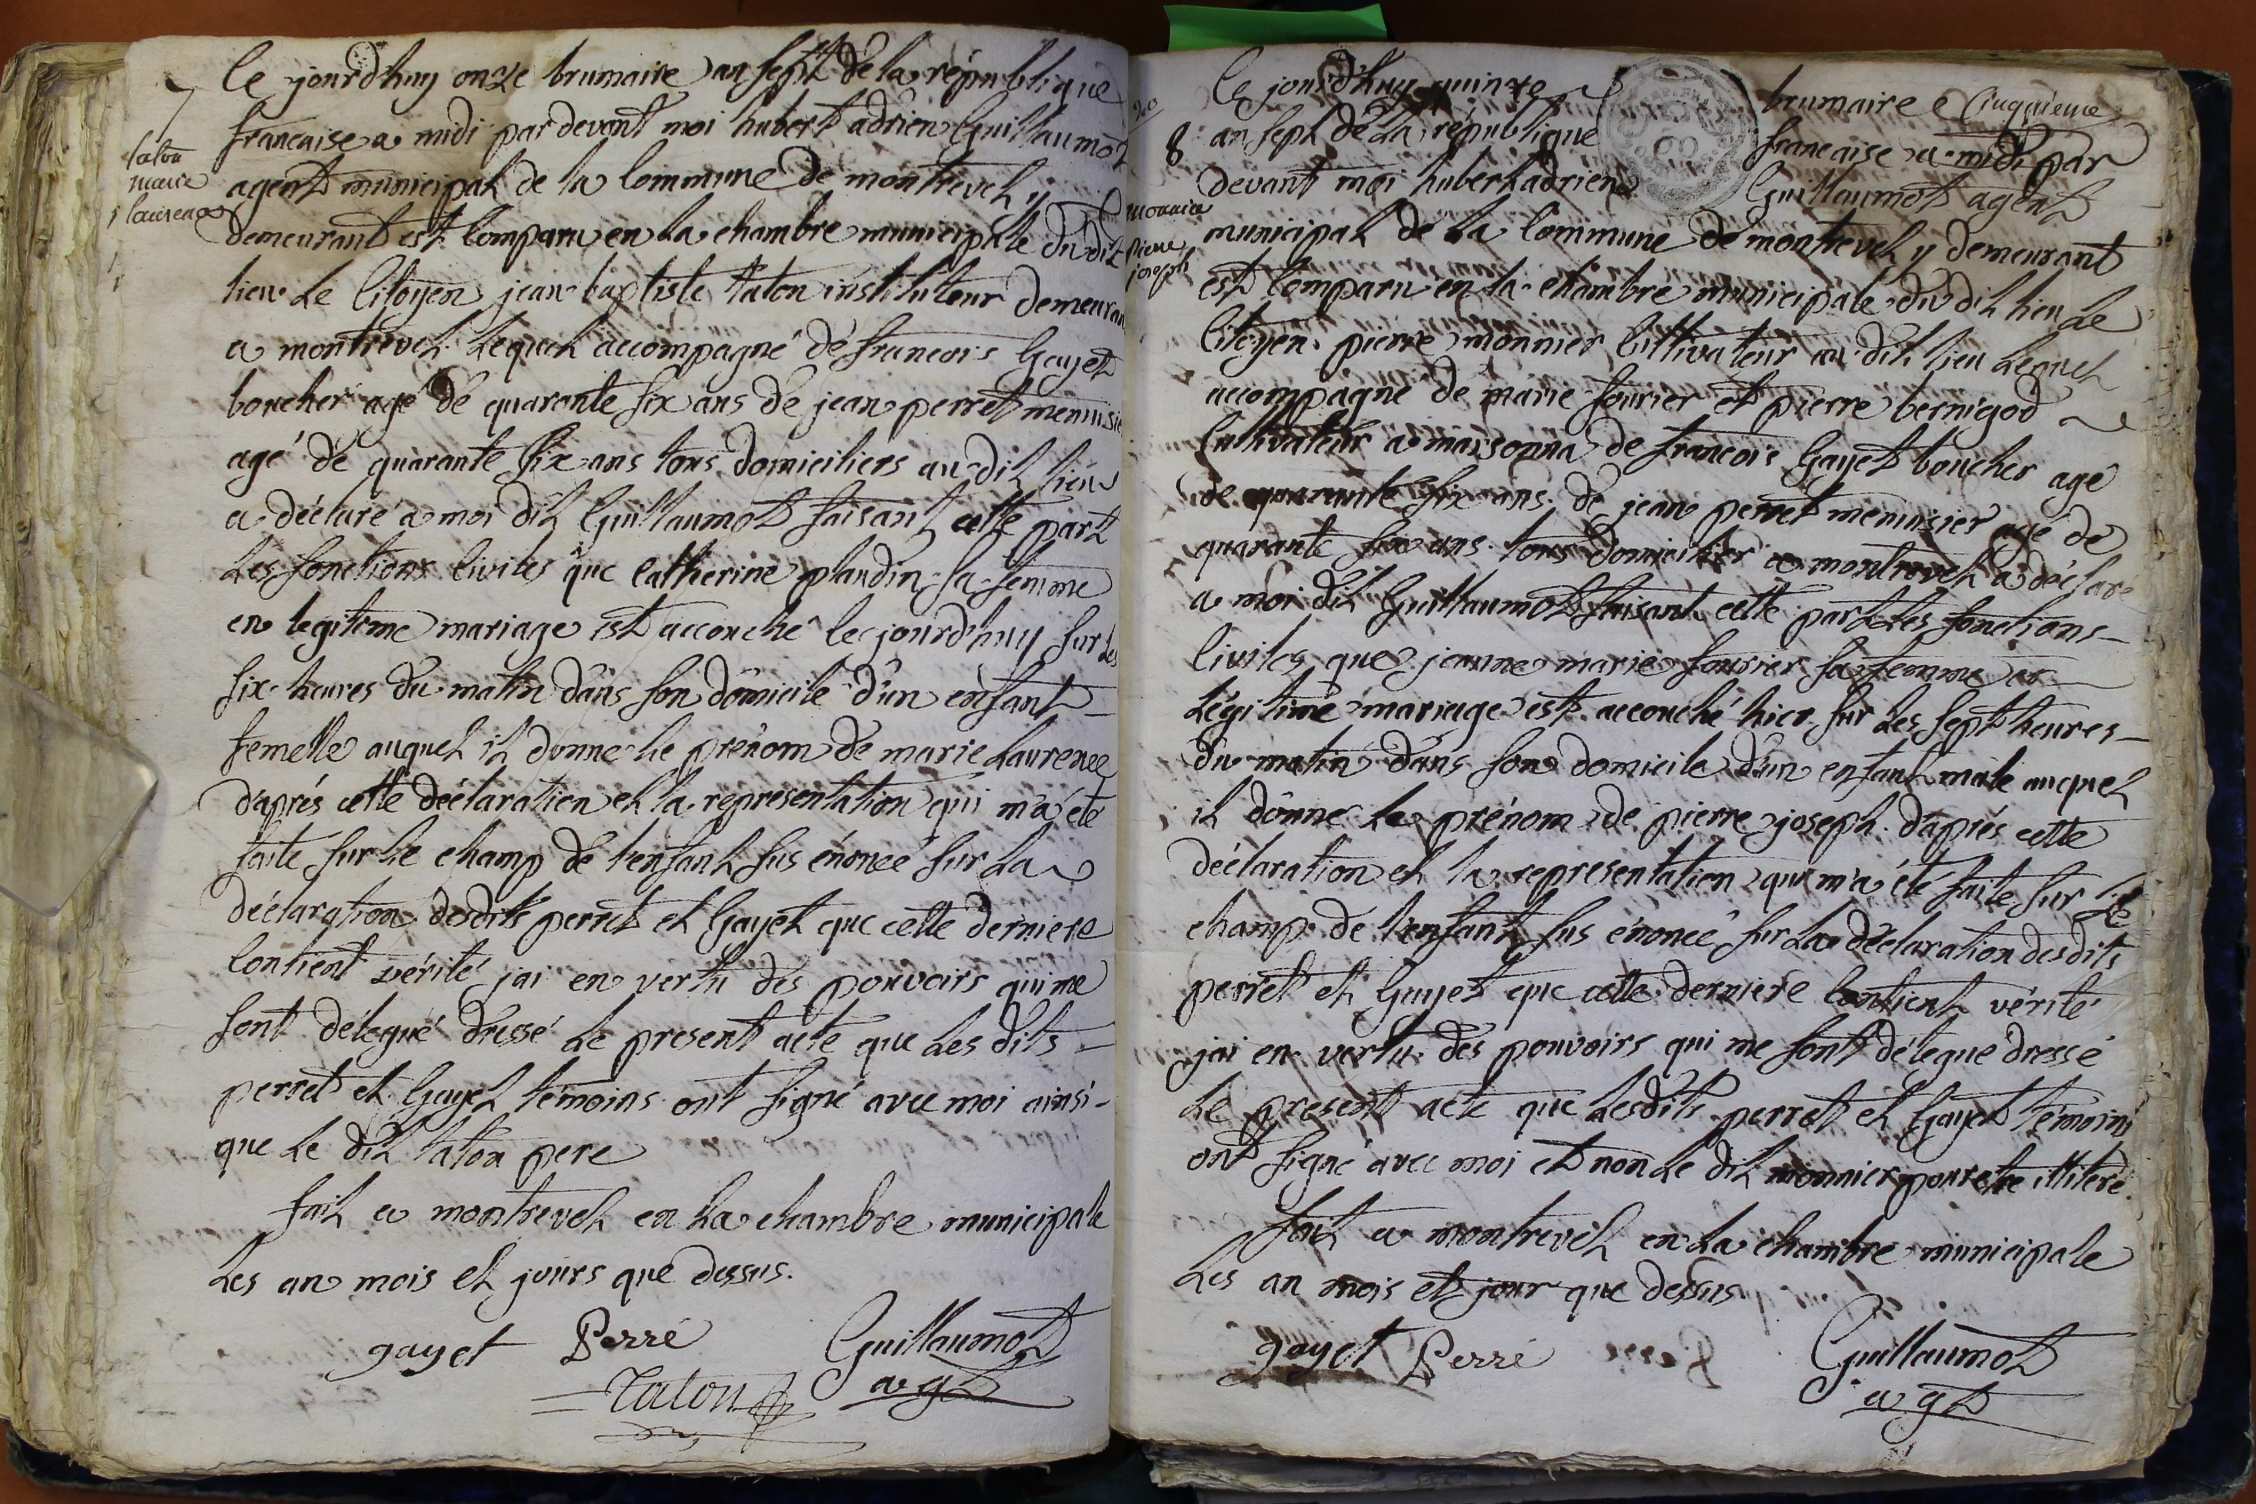 7
Ce jourd'huy onze brumaire an sept de la république
francaise a midi par devant moi hubert adrien Guillaumot
agent municipal de la Commune de montrevel y
demeurant est Comparu en la chambre municipalle du dit
lieu le Citoyen jean baptiste taton instituteur demeurant
a montrevel lequel accompagné de francois Gayet
boucher agé de quarante six ans de jean perret menuisie
agé de quarante six ans tous domiciliers au dit lieu
a déclaré a moi dit Guillaumot faisant cette part
les fonctions Civiles que Catherine plaudin sa femme
en legitime mariage est accouché le jourd'huy sur les
six heures du matin dans son domicile d'un enfant
femelle auquel il donne le prénom de marie Laurence
d'aprés cette déclaration et la représentation qui m'a été
faite sur le champ de l'enfant sus énoncé sur la
déclaration desdits perret et Gayet que cette derniere
Contient vérité jai en vertu des pouvoirs qui me
sont délegué dressé le present acte que les dits
perret et Gayet témoins ont signé avec moi ainsi
que le dit taton pere
fait a montrevel en la chambre municipale
les an mois et jours que dessus.
gayet Perré Guillaumot
Taton agt
taton
marie
laurence
20
8
Ce jourd'huy quinze brumaire Cinquieme
an sept de la république francaise a midi par
devant moi hubert adrien Guillaumot agent
municipal de la Commune de montrevel y demeurant
est Comparu en la chambre municipale du dit lieu le
Citoyen pierre monnier Cultivateur au dit lieu lequel
accompagné de marie fourier et pierre bernigod
Cultivateur a marsonna de francois Gayet boucher agé
de quarante six ans de jean perret menuisier agé de
quarante six ans tous domicilier a montrevel a déclaré
a moi dit Guillaumot faisant cette part les fonctions
Civiles que jeanne marie fourier sa femme en
légitime mariage est accouché hier sur les sept heures
du matin dans son domicile d'un enfant male auquel
il donne le prénom de pierre joseph d'aprés cette
déclaration et la représentation qui m'a été faite sur le
champ de l'enfant sus énoncé sur la déclaration desdits
perret et Gayet que cette derniere Contient vérité
jai en vertu des pouvoirs qui me sont délegue dressé
le present acte que lesdits perret et Gayet témoins
ont signé avec moi et non le dit monnier pour etre illiteré
fait a montrevel en la chambre municipale
les an mois et jour que dessus
gayet Perré Guillaumot
agt
monnier
pierre
joseph